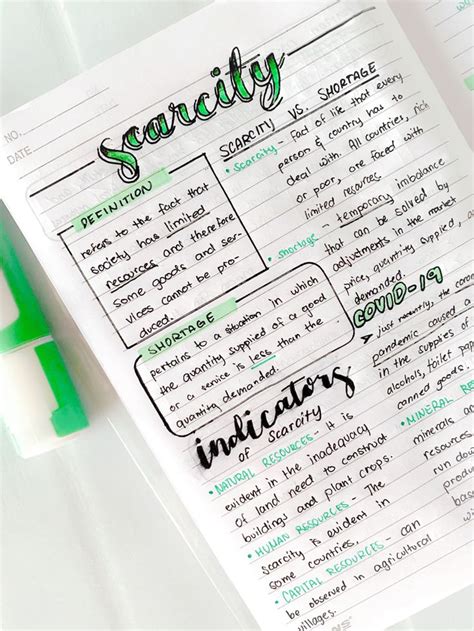 NO.
DATE
scarcity
DEFINITION
refers to the fact that
society has limited
resources and therefore
some goods and ser-
vices cannot be pro-
duced.
SHORTAGE
pertains to a situation in which
the quantity supplied of a good
or a service is less than the
quantity demanded.
SCARCITY VS. SHORTAGE
• scarcity - fact of life that every
person & country has to
deal with. All countries, rich
or poor, are faced with
limited resources
• shortage - temporary imbalance
that can be solved by
adjustments in the market
price, quantity supplied,
demanded.
COVID-19
just recently, the
pandemic caused
in the supplies
alcohols, toilet
canned goods.
indicators
of Scarcity
• NATURAL RESOURCES - It is
evident in the inadequacy
of land need to construct
buildings and plant crops.
• HUMAN RESOURCES - The
scarcity is evident in
some countries.
• CAPITAL RESOURCES - can
be observed in agricultural
villages.
• MINERAL
minerals
resources
run down